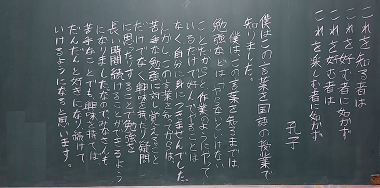 これを知る者は
これを好む者に如かず
これを好む者は
これを楽しむ者に如かず
孔子
僕はこの言葉を国語の授業で
知りました。
僕はこの言葉を知るまでは
勉強などは、やらないといけない
ことだからと作業のようにやって
いるだけで好んでやることは
なく自分に身につきませんでした。
しかしこの言葉を知ってからは、
苦手な勉強に対して覚えること
だけでなく、興味を持ったり疑問
に思ったりすることで勉強を
長い時間続けることができるよう
になりました。なのでみなさんも
苦手なことでも興味を持てば、
だんだんと好きになり続けて
いけるようになると思います。